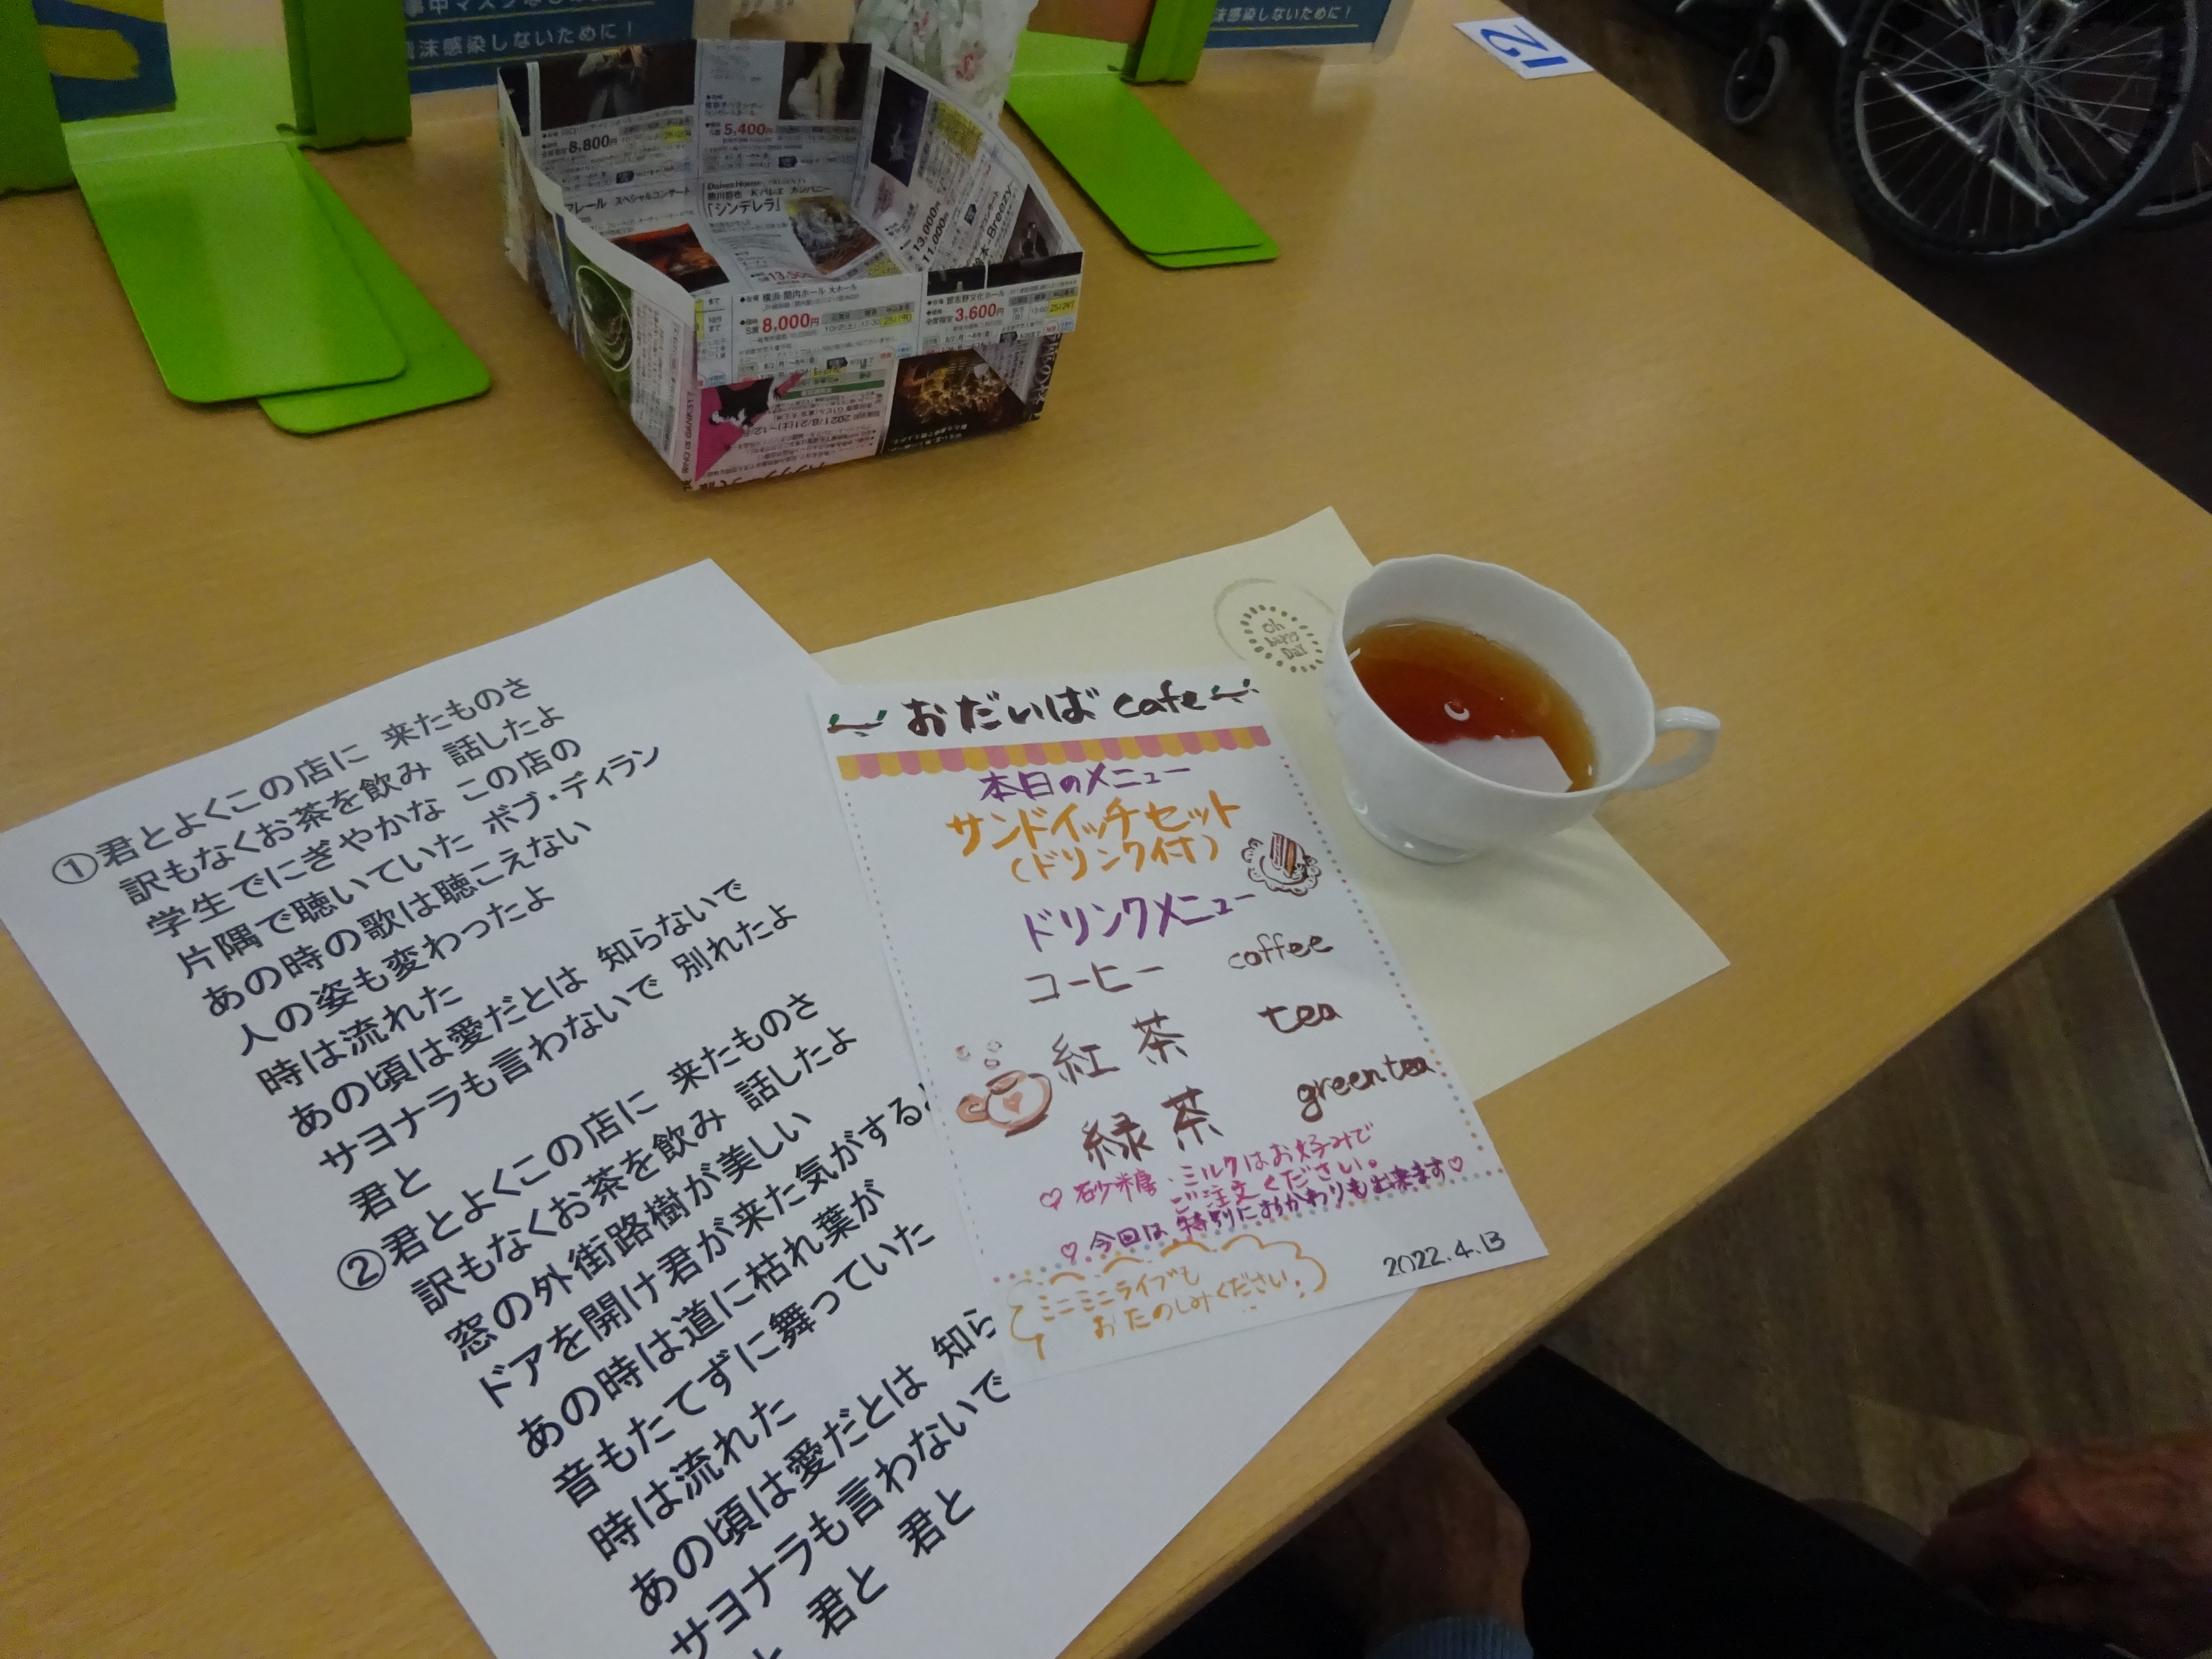 飛沫感染しないために！
沫感染しないために！
12
8,800円
5,400円
スペシャルコンサート
Kバレエ カンパニー
「シンデレラ」
13,000円
11,000円
Breezy
横浜 関内ホール 大ホール
8,000円
習志野文化ホール
3,600円
Oh
happy
Day
①君とよくこの店に 来たものさ
訳もなくお茶を飲み 話したよ
学生でにぎやかな この店の
片隅で聴いていた ボブ・ディラン
あの時の歌は聴こえない
人の姿も変わったよ
時は流れた
あの頃は愛だとは 知らないで
サヨナラも言わないで 別れたよ
君と
②君とよくこの店に 来たものさ
訳もなくお茶を飲み 話したよ
窓の外街路樹が美しい
ドアを開け君が来た気がする
あの時は道に枯れ葉が
音もたてずに舞っていた
時は流れた
あの頃は愛だとは 知ら
サヨナラも言わないで
と 君と 君と
おだいば cafe
本日のメニュー
サンドイッチセット
（ドリンク付）
ドリンクメニュー
コーヒー coffee
紅茶 tea
緑茶 green tea
♡ 砂糖・ミルクはお好みで
ご注文ください。
♡ 今回は特別におかわりも出来ます♡
ミニミニライブも
おたのしみください！
2022.4.13